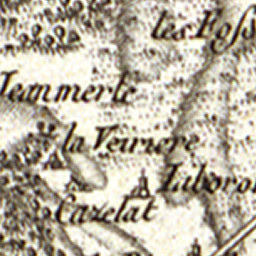 les Foss
Jeanmerle
la Veiriere
Laboro
Cazelat